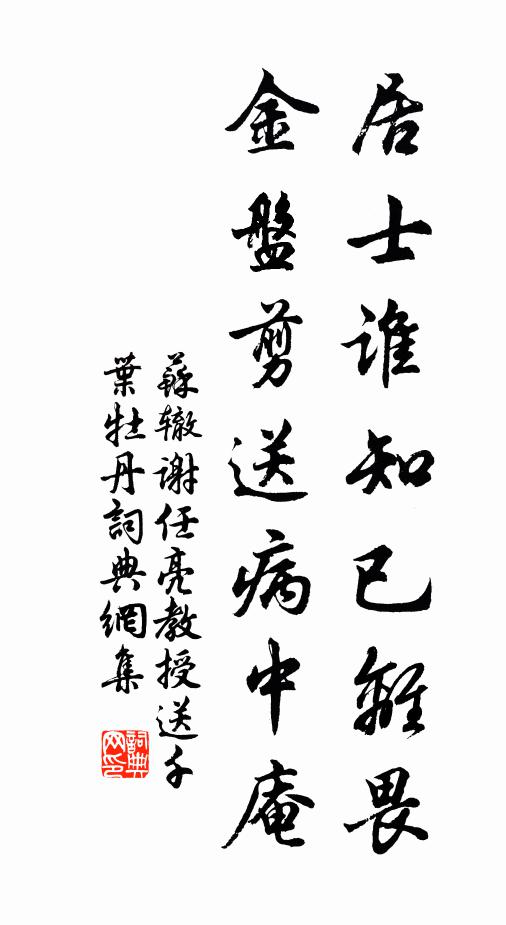 居士誰知已離畏
金盤剪送病中庵
蘇轍謝任亮教授送千
葉牡丹詞典網集
詞典網印